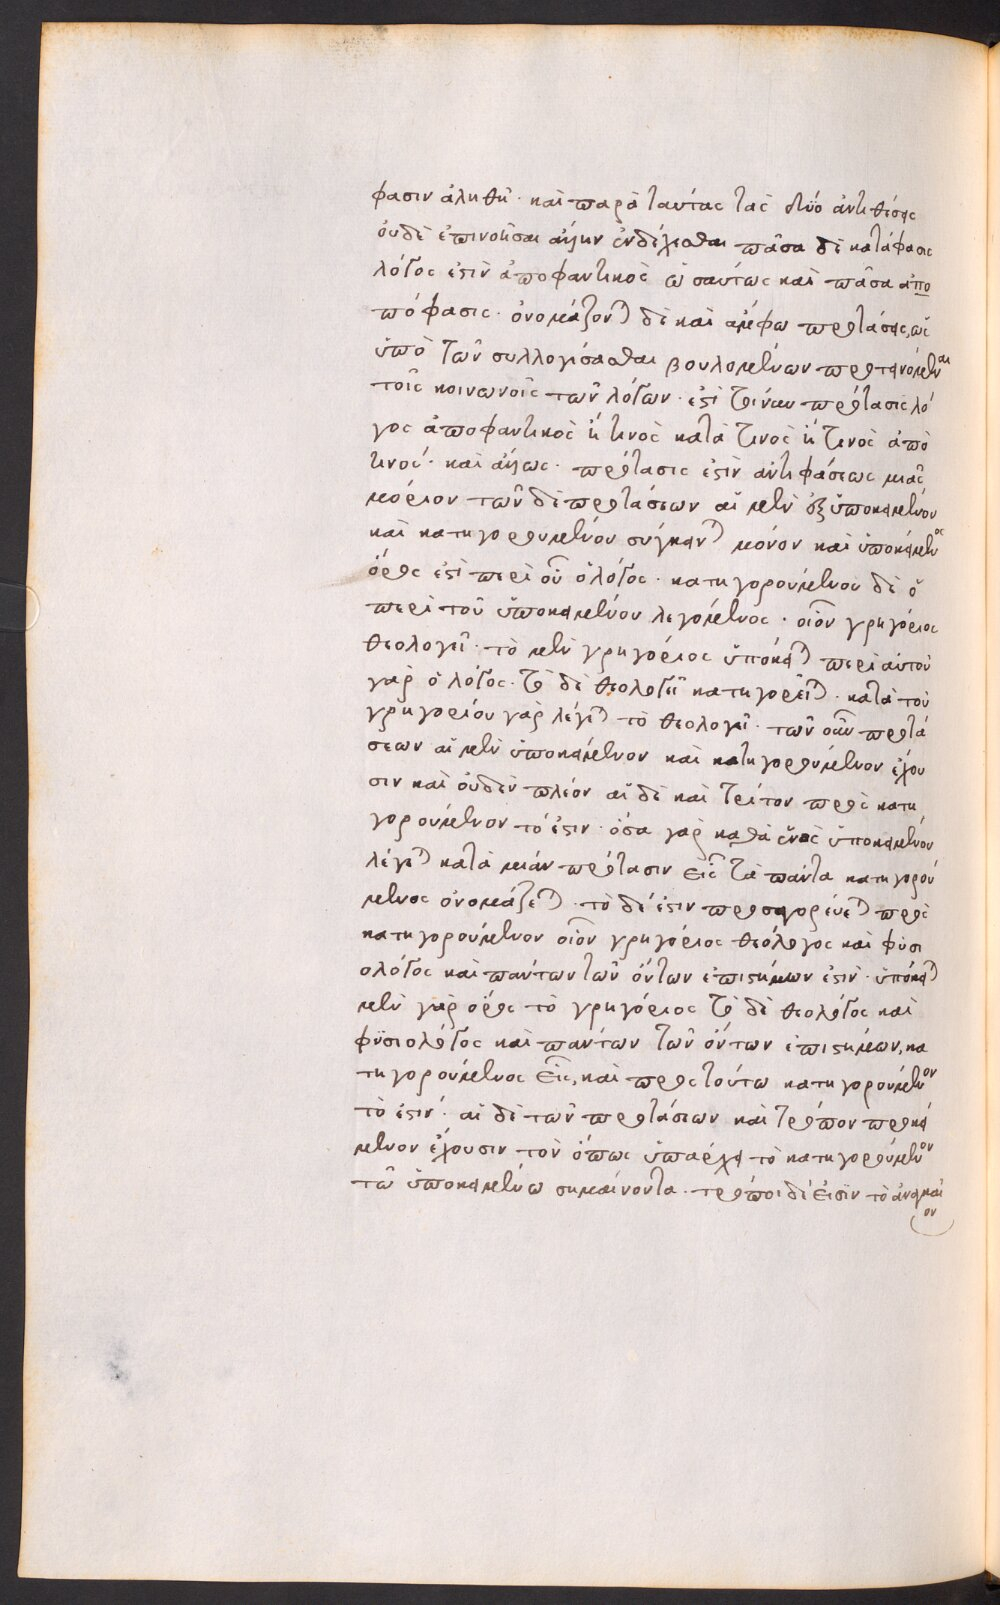 φασιν ἀληθῆ· καὶ παρὰ ταύτας τὰς δύο ἀντιθέσεις
οὐδὲ ἐπινοῆσαι ἄλλην ἐνδέχεσθαι πᾶσα δὲ κατάφασις
λόγος ἐστὶν ἀποφαντικὸς ὡσαύτως καὶ πᾶσα ἀπο
πόφασις· ὀνομάζονται δὲ καὶ ἄμφω προτάσεις, ὡς
ὑπὸ τῶν συλλογίσασθαι βουλομένων προτεινόμεναι
τοῖς κοινωνοῖς τῶν λόγων· ἔστι τοίνυν πρότασις λό
γος ἀποφαντικὸς ἤ τινὸς κατὰ τινὸς ἤ τινὸς ἀπό
τινος· καὶ ἄλλως· πρότασις ἐστὶν ἀντιφάσεως μιᾶς
μόριον τῶν δὲ προτάσεων αἱ μὲν ἐξ ὑποκειμένου
καὶ κατηγορουμένου σύγκεινται μόνον καὶ ὑποκείμενος
ὅρος ἐστὶ περὶ οὗ ὁ λόγος· κατηγορούμενος δὲ ὁ
περὶ τοῦ ὑποκειμένου λεγόμενος· οἷον γρηγόριος
θεολογεῖ· τὸ μὲν γρηγόριος ὑπόκειται περὶ αὐτοῦ
γὰρ ὁ λόγος· τὸ δὲ θεολογεῖ κατηγορεῖται· κατὰ τοῦ
γρηγορίου γὰρ λέγεται τὸ θεολογεῖ· τῶν οὖν προτά
σεων αἱ μὲν ὑποκείμενον καὶ κατηγορούμενον ἔχου
σιν καὶ οὐδὲν πλέον αἱ δὲ καὶ τρίτον πρὸς κατη
γορούμενον τὸ ἔστιν· ὅσα γὰρ καθὰ ἑνὸς ὑποκειμένου
λέγεται κατὰ μίαν πρότασιν εἷς τὰ πάντα κατηγορού
μενος ὀνομάζεται· τὸ δέ ἐστιν προσαγορεύεται πρὸς
κατηγορούμενον οἷον γρηγόριος θεόλογος καὶ φυσι
ολόγος καὶ πάντων τῶν ὄντων ἐπιστήμων ἐστὶν· ὑπόκειται
μὲν γὰρ ὅρος τὸ γρηγόριος τὸ δὲ θεολόγος καὶ
φυσιολόγος καὶ πάντων τῶν ὄντων ἐπιστήμων, κα
τηγορούμενος εἷς, καὶ πρὸς τούτω κατηγορούμενον
τὸ ἐστίν· αἱ δὲ τῶν προτάσεων καὶ τρόπον προκεί
μενον ἔχουσιν τὸν ὅπως ὑπάρχει τὸ κατηγορούμενον
τῶ ὑποκειμένω σημαίνοντα· τρόποι δέ εἰσιν τὸ ἀναγκαῖ
ον